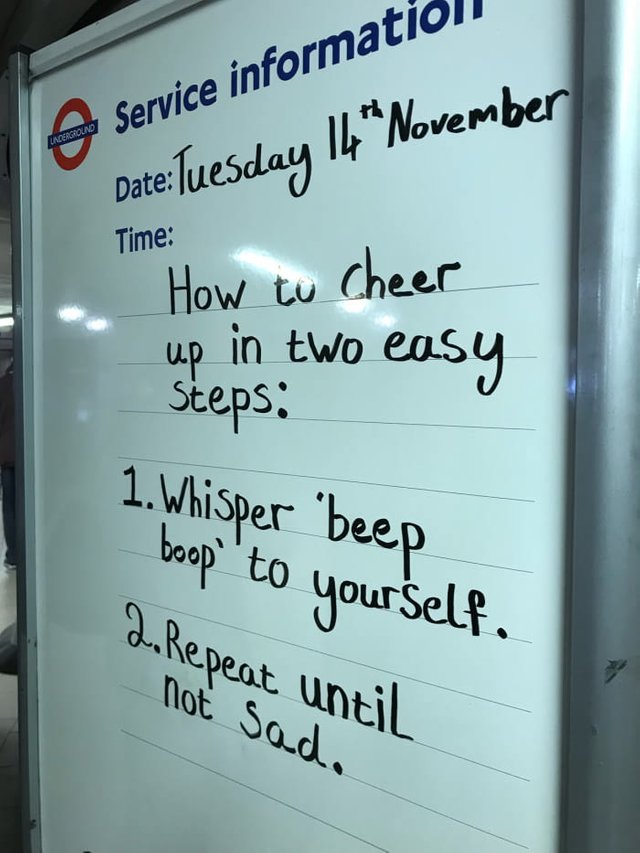 Service information
UNDERGROUND
Date: Tuesday 14th November
Time:
How to cheer
up in two easy
steps:
1. Whisper 'beep
boop' to yourself.
2. Repeat until
not sad.